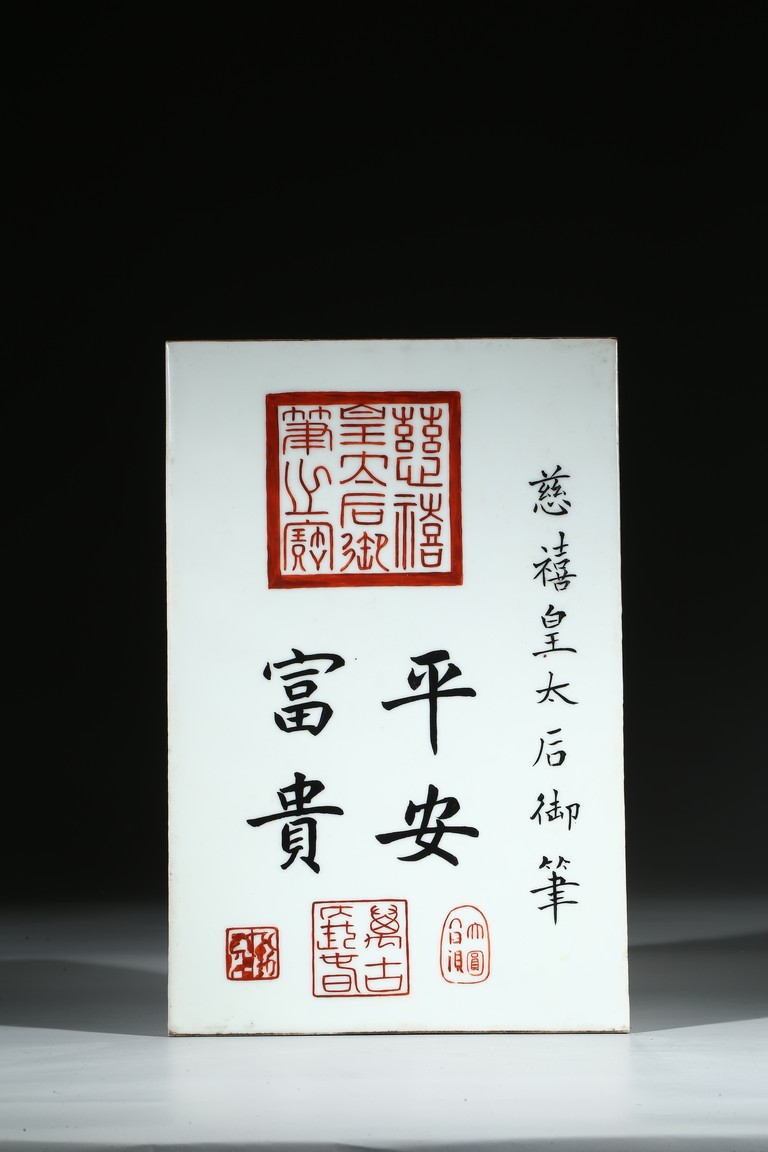 慈禧皇太后御筆
慈禧
皇太后御
筆之寶
平安
富貴
萬古